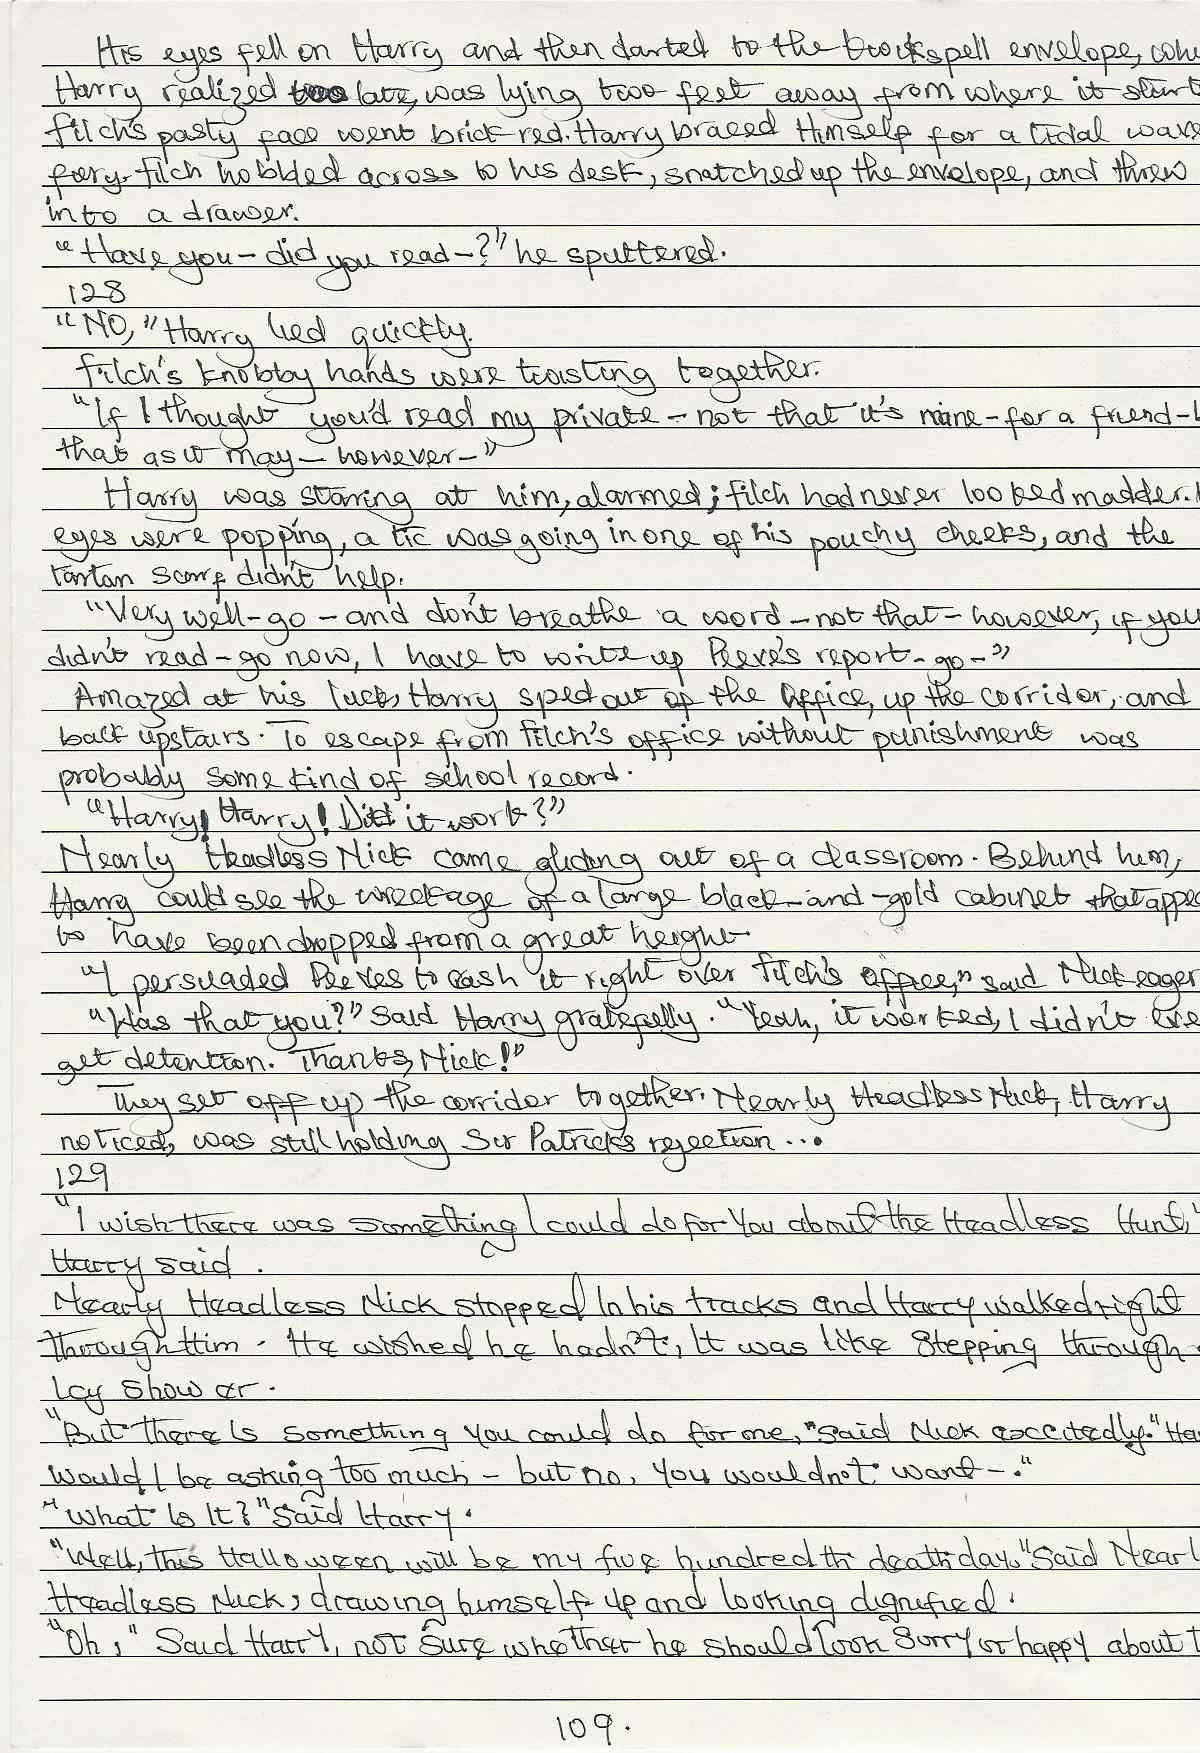 His eyes fell on Harry and then darted to the kwikspell envelope, whi
Harry realized too late, was lying two feet away from where it start
filch's pasty face went brick-red. Harry braced Himself for a tidal wave
fury. filch hobbled across to his desk, snatched up the envelope, and threw
into a drawer.
"Have you - did you read -?" he sputtered.
128
"NO," Harry lied quickly.
filch's knobby hands were twisting together.
"If I thought you'd read my private - not that it's mine - for a friend - b
that as it may - however -"
Harry was staring at him, alarmed; filch had never looked madder. H
eyes were popping, a tic was going in one of his pouchy cheeks, and the
tartan scarf didn't help.
"Very well - go - and don't breathe a word - not that - however, if you
didn't read - go now, I have to write up Peeve's report - go -"
Amazed at his luck, Harry sped out of the office, up the corridor, and
back upstairs. To escape from filch's office without punishment was
probably some kind of school record.
"Harry! Harry! Did it work?"
Nearly Headless Nick came gliding out of a classroom. Behind him,
Harry could see the wreckage of a large black-and-gold cabinet that appea
to have been dropped from a great height.
"I persuaded Peeves to cash it right over filch's office," said Nick eager
"Was that you?" said Harry gratefully. "Yeah, it worked, I didn't eve
get detention. Thanks, Nick!"
They set off up the corridor together. Nearly Headless Nick, Harry
noticed, was still holding Sir Patrick's rejection...
129
"I wish there was something I could do for You about the Headless Hunt,"
Harry said.
Nearly Headless Nick stopped In his tracks and Harry walked right
through Him. He wished he hadn't, It was like Stepping through
Icy show er.
"But there Is something you could do for me," said Nick excitedly. "Ha
would I be asking too much - but no, You wouldn't want -."
"What Is It?" Said Harry.
"Well, this Halloween will be my five hundredth deathday." Said Nearl
Headless Nick, drawing himself up and looking dignified.
"Oh," Said Harry, not Sure whether he should look Sorry or happy about t
109.